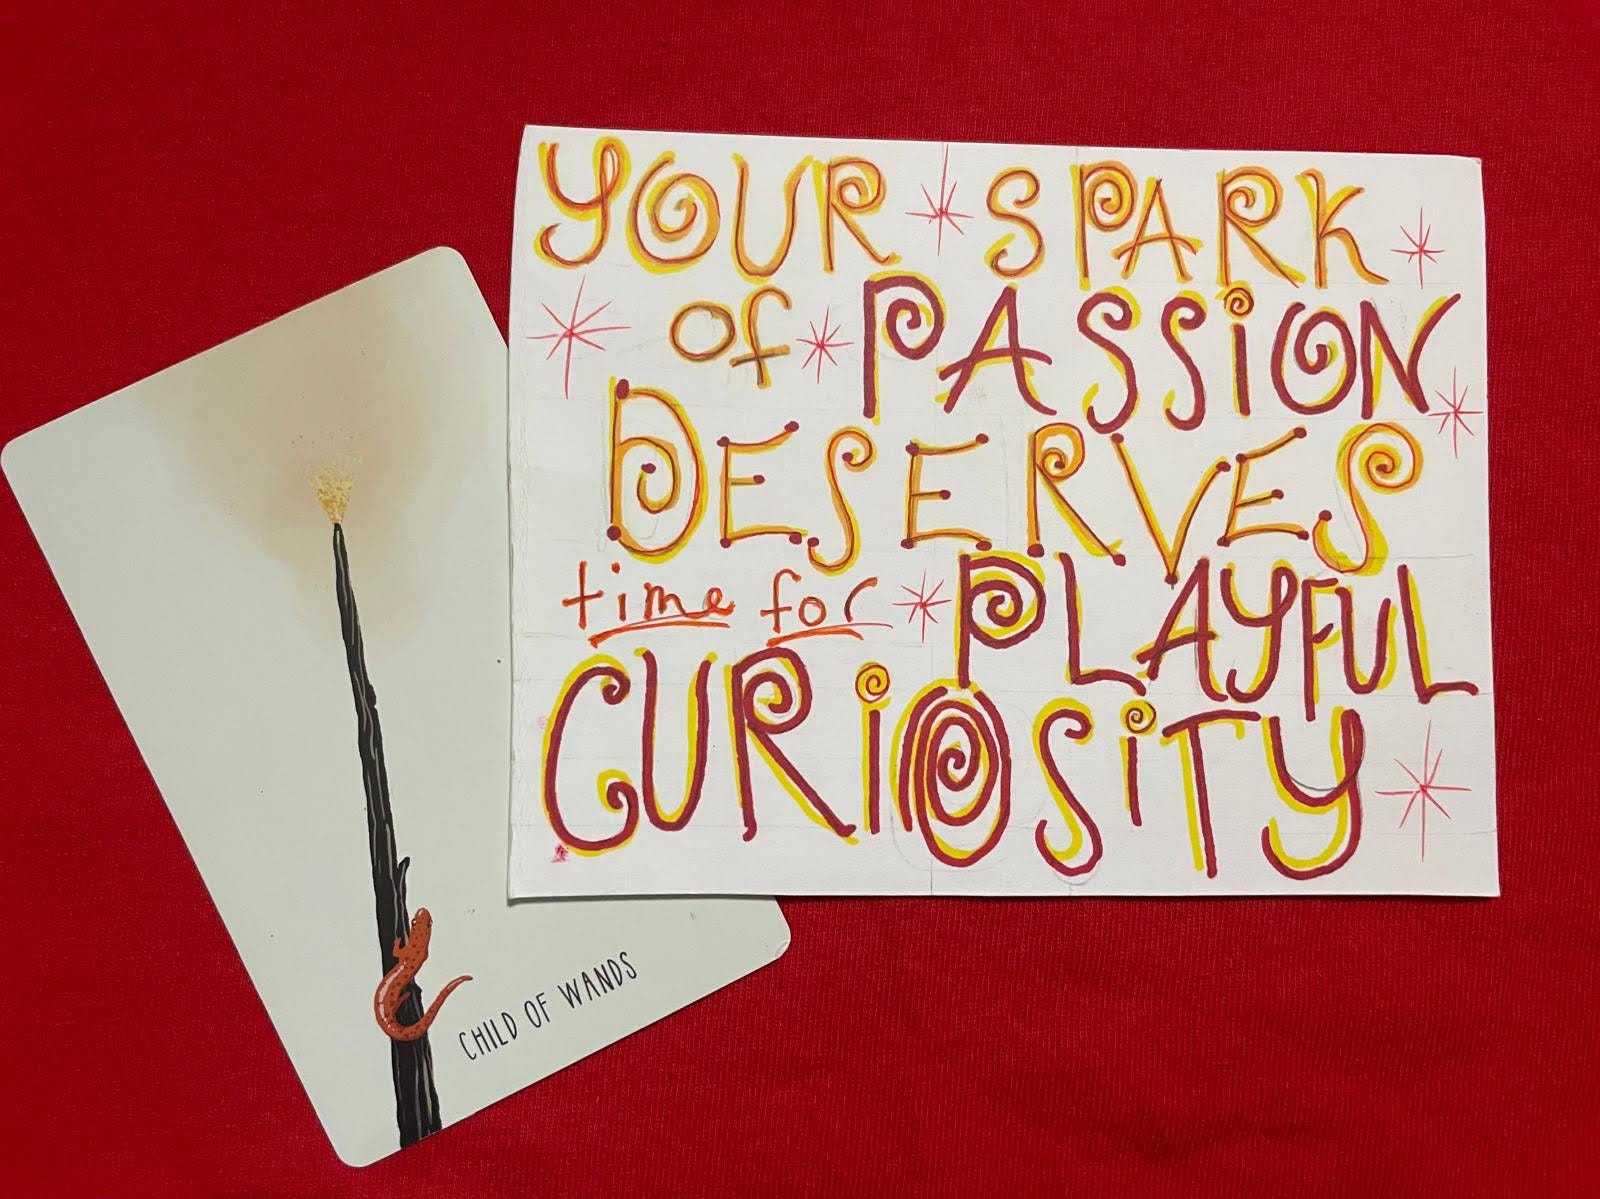 YOUR SPARK
of PASSiON
DESERVES
time for PLAYFUL
CURiOSiTY
CHILD OF WANDS